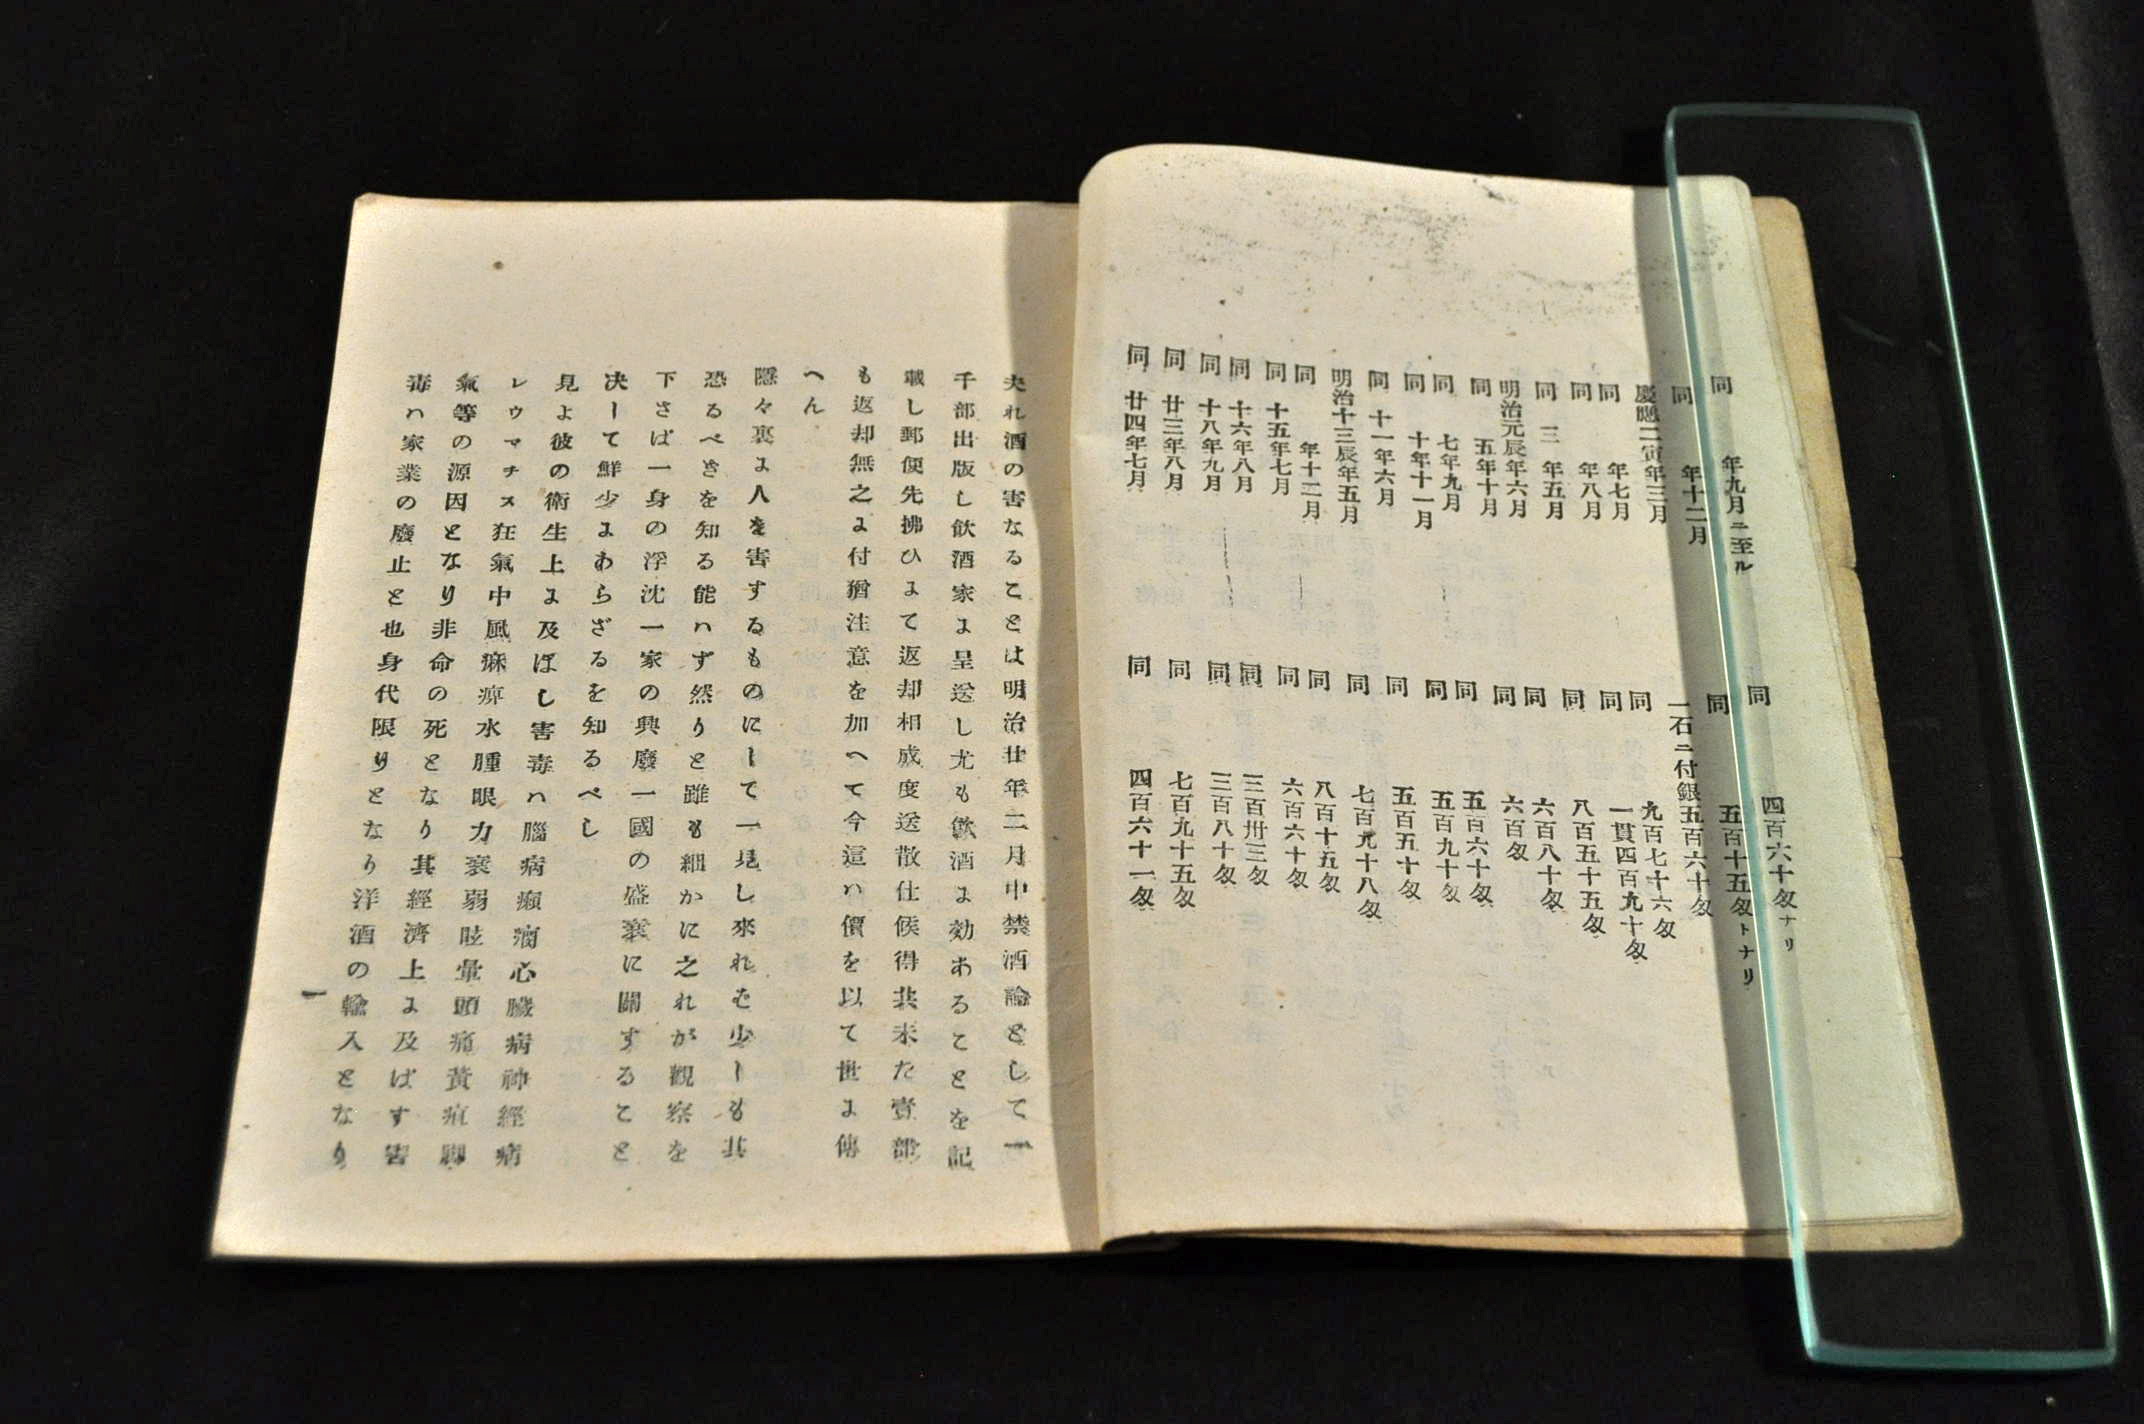 同 年九月ニ至ル 同 四百六十匁ナリ
同 年十二月 同 五百十五匁トナリ
慶應二寅年三月 一石ニ付銀五百六十匁
同 年七月 同 九百七十六匁
同 年八月 同 一貫四百九十匁
同 三 年五月 同 八百五十五匁
明治元辰年六月 同 六百八十匁
同 五年十月 同 六百匁
同 七年九月 同 五百六十匁
同 十年十一月 同 五百九十匁
同 十一年六月 同 五百五十匁
明治十三辰年五月 同 七百九十八匁
同 年十二月 同 八百十五匁
同 十五年七月 同 六百六十匁
同 十六年八月 同 三百卅三匁
同 十八年九月 同 三百八十匁
同 廿三年八月 同 七百九十五匁
同 廿四年七月 同 四百六十一匁
夫れ酒の害なることは明治廿年二月中禁酒論として一
千部出版し飲酒家に呈送し尤も飲酒に効あることを記
載し郵便先拂ひにて返却相成度送散仕候得共未た壹部
も返却無之に付猶注意を加へて今這ハ價を以て世に傳
へん
隱々裏に人を害するものにして一見し來れむ少しも其
恐るべきを知る能ハず然りと雖も細かに之れが觀察を
下さば一身の浮沈一家の興廢一國の盛衰に關すること
决して鮮少にあらざるを知るべし
見よ彼の衛生上に及ぼし害毒ハ腦病癲癇心臓病神經病
レウマチス狂氣中風痳痺水腫眼力衰弱眩暈頭痛黄疸脚
氣等の源因となり非命の死となり其經濟上に及ばす害
毒ハ家業の廢止と也身代限りとなり洋酒の輸入となり
一